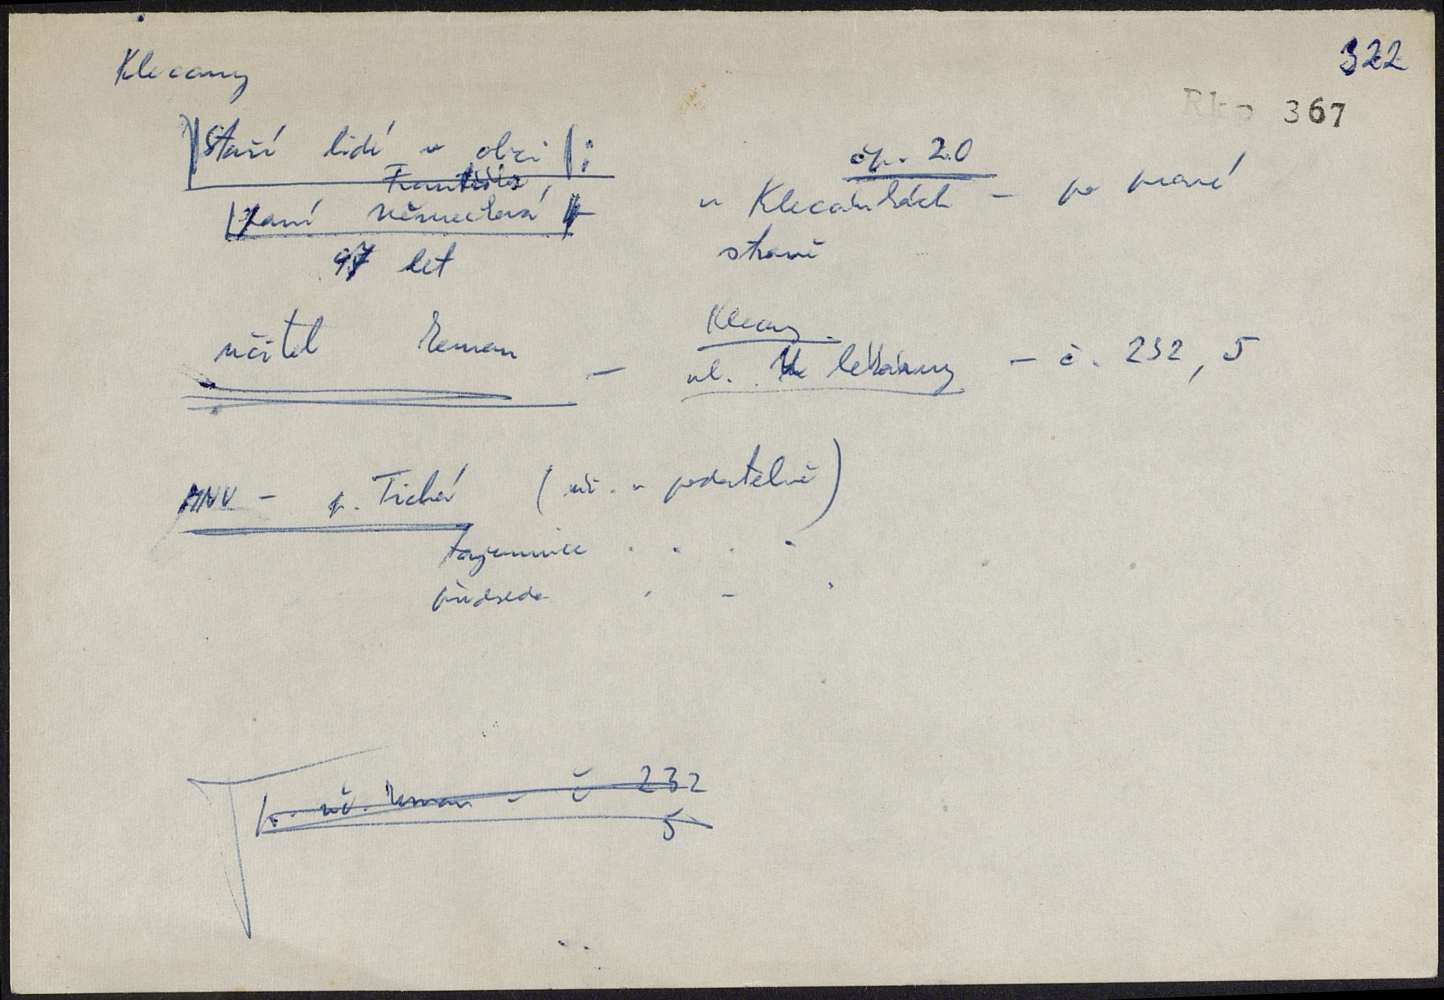 Klecany
322
Rkp 367
Staří lidé v obci :
Františka
paní Němečková
97 let
čp. 20
v Klecánkách – po pravé
straně
učitel Zeman –
Klecany
ul. U lékárny – č. 232, 5
MNV – p. Tichá (úř. v podatelně)
tajemnice . . . .
předseda . - .
p. uč. Zeman – č 232
5